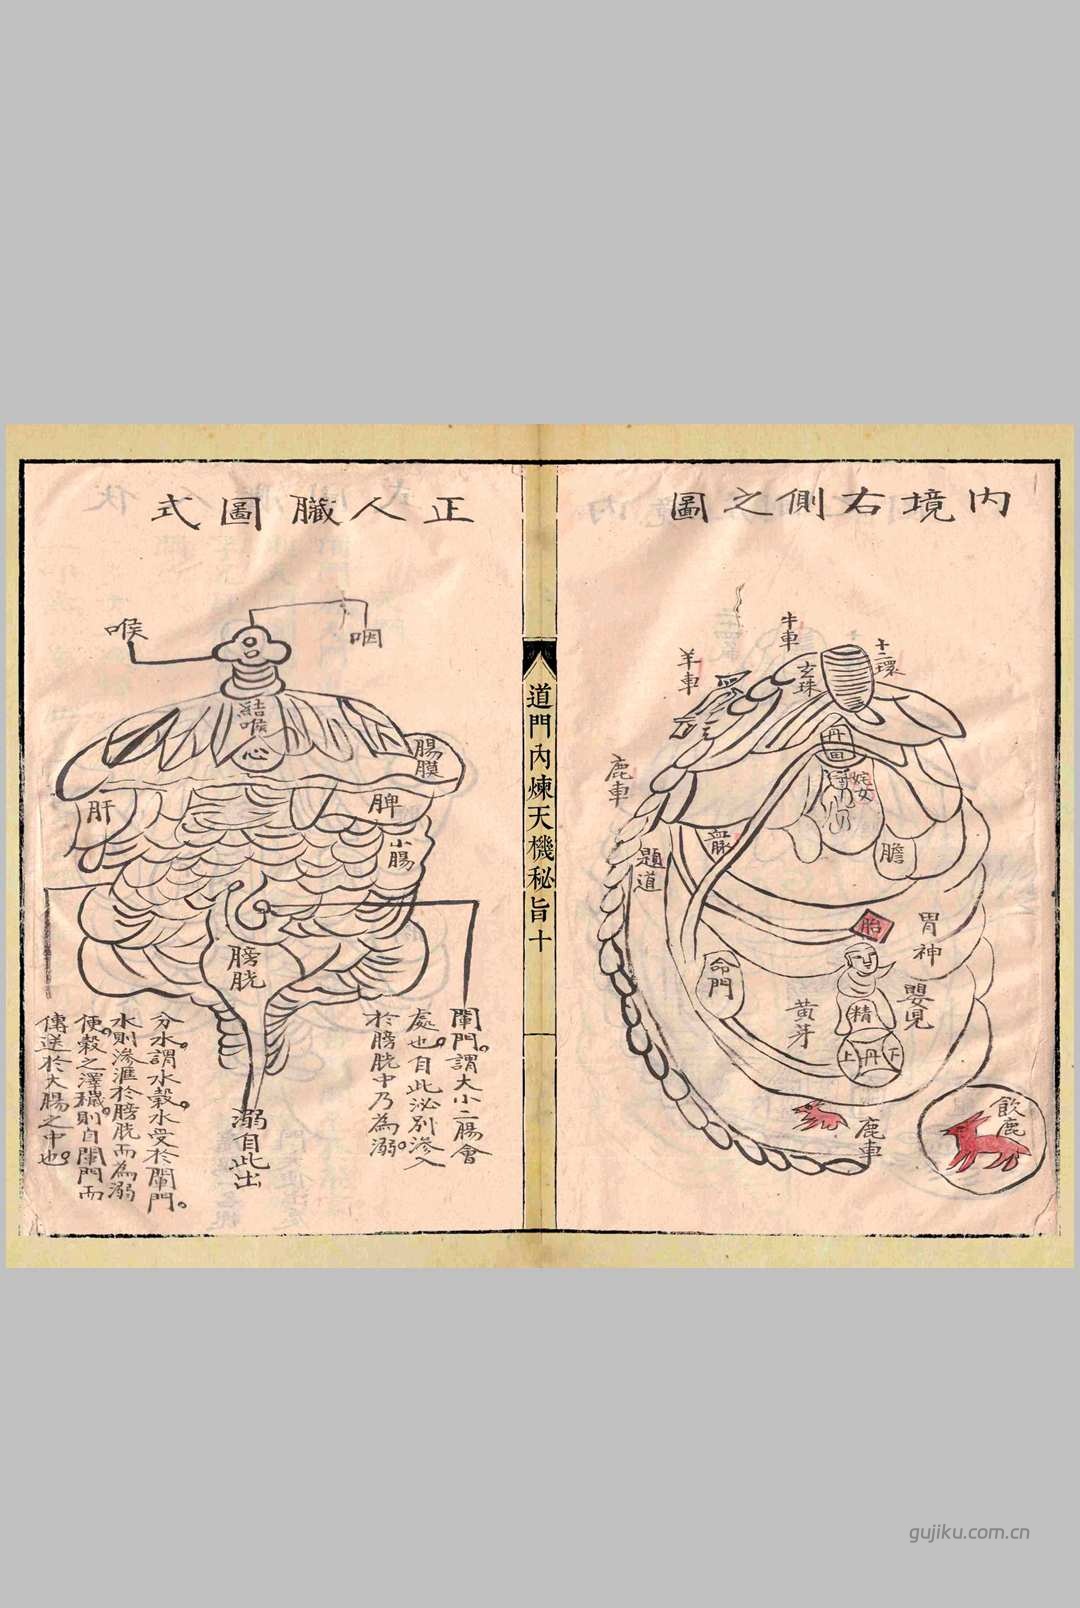 內境右側之圖
十二環
牛車
玄珠
羊車
鹿車
丹田
姹女
膽
題道
胎
胃神
命門
嬰兒
精
黃芽
上丹下
鹿車
飲鹿
道門內煉天機秘旨十
正人臟圖式
咽
喉
結喉
心
腸膜
肝
脾
小腸
膀胱
闌門。謂大小二腸會
處也。自此泌別滲入
於膀胱中乃為溺。
溺自此出
分水。謂水穀。水受於闌門。
水則滲滙於膀胱而為溺
便。穀之澤穢。則自闌門而
傳送於大腸之中也。
gujiku.com.cn